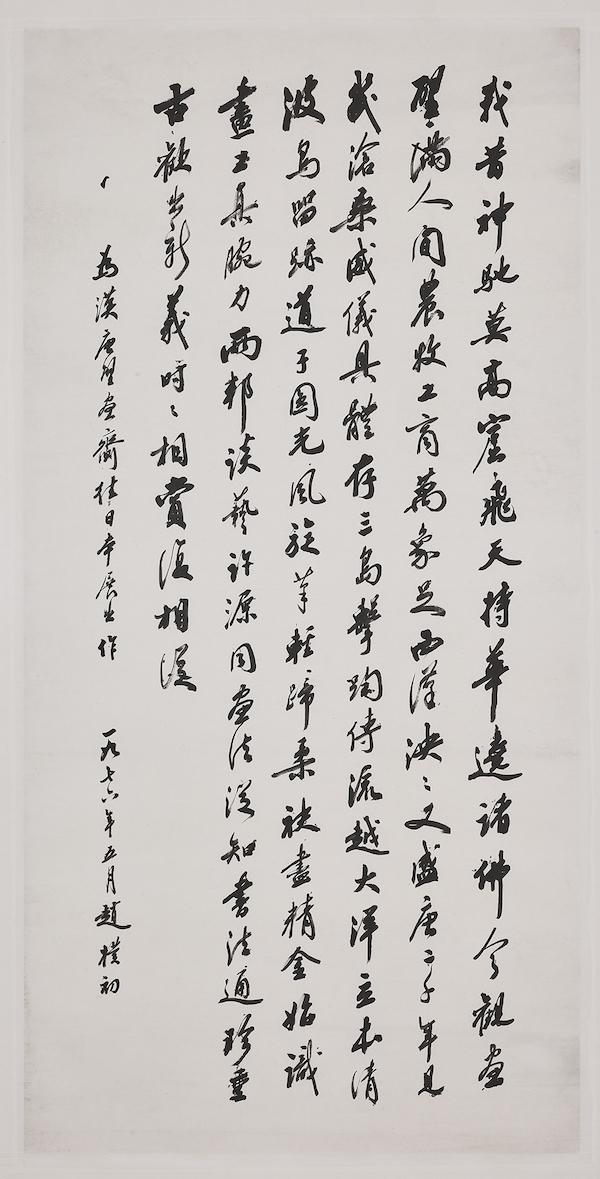 我昔神馳莫高窟飛天持華遶諸佛今觀畫
壁滿人間農牧工商萬象足西漢泱泱又盛唐二千年見
幾滄桑威儀具體存三島擊鞠傳流越大洋立本清
波鳥留跡道子圓光風旋筆輕蹄柔袂盡精金始識
畫工具腕力兩邦談藝許源同畫法從知書法通珍重
古歡出新義時時相賞復相從
為漢唐壁畫齎往日本展出作 一九七六年五月趙樸初